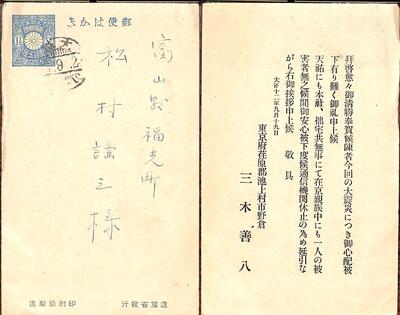 郵便はかき
富山縣福光町
松村謙三様
遞信省發行
印刷局製造
拝啓愈々御清勝奉賀候陳者今回の大震災につき御心配被
下有り難く御礼申上候
天祐にも本社、拙宅共無事にて在京親族中にも一人の被
害者無之候間御安心被下度候通信機関休止の為め延引な
がら右御挨拶申上候 敬具
大正十二年九月十九日
東京府荏原郡池上村市野倉
三木善八